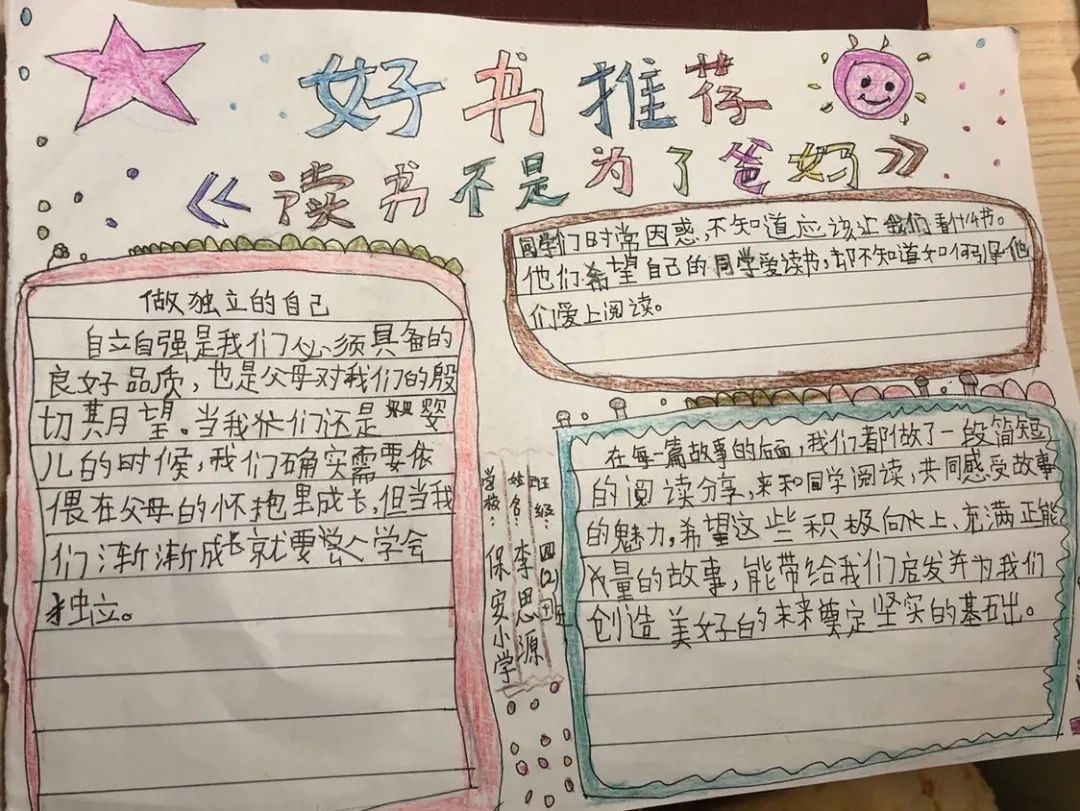 好书推荐
《读书不是为了爸妈》
做独立的自己
自立自强是我们必须具备的
良好品质，也是父母对我们的殷
切期望。当我们还是婴
儿的时候，我们确实需要依
偎在父母的怀抱里成长，但当我
们渐渐成长就要学会
独立。
同学们时常因惑，不知道应该让我们看什么书。
他们希望自己的同学爱读书，却不知道如何引导他
们爱上阅读。
学校：保安小学
姓名：李思源
班级：四(2)班
在每一篇故事的后面，我们都做了一段简短
的阅读分享，来和同学阅读，共同感受故事
的魅力，希望这些积极向上、充满正能
量的故事，能带给我们启发并为我们
创造美好的未来奠定坚实的基础。